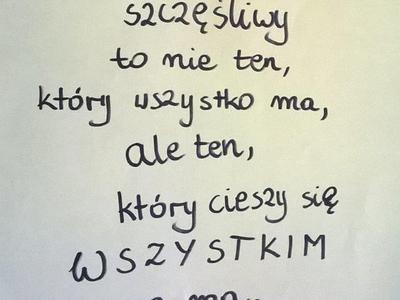 szczęśliwy
to nie ten,
który wszystko ma,
ale ten,
który cieszy się
WSZYSTKIM